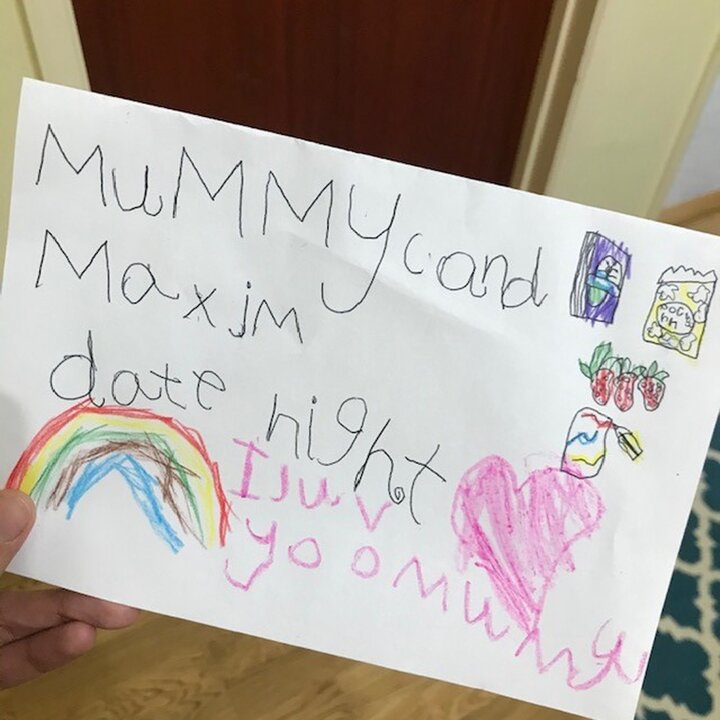 MuMMy and
Maxim
date night
I luv
yoo Mummy